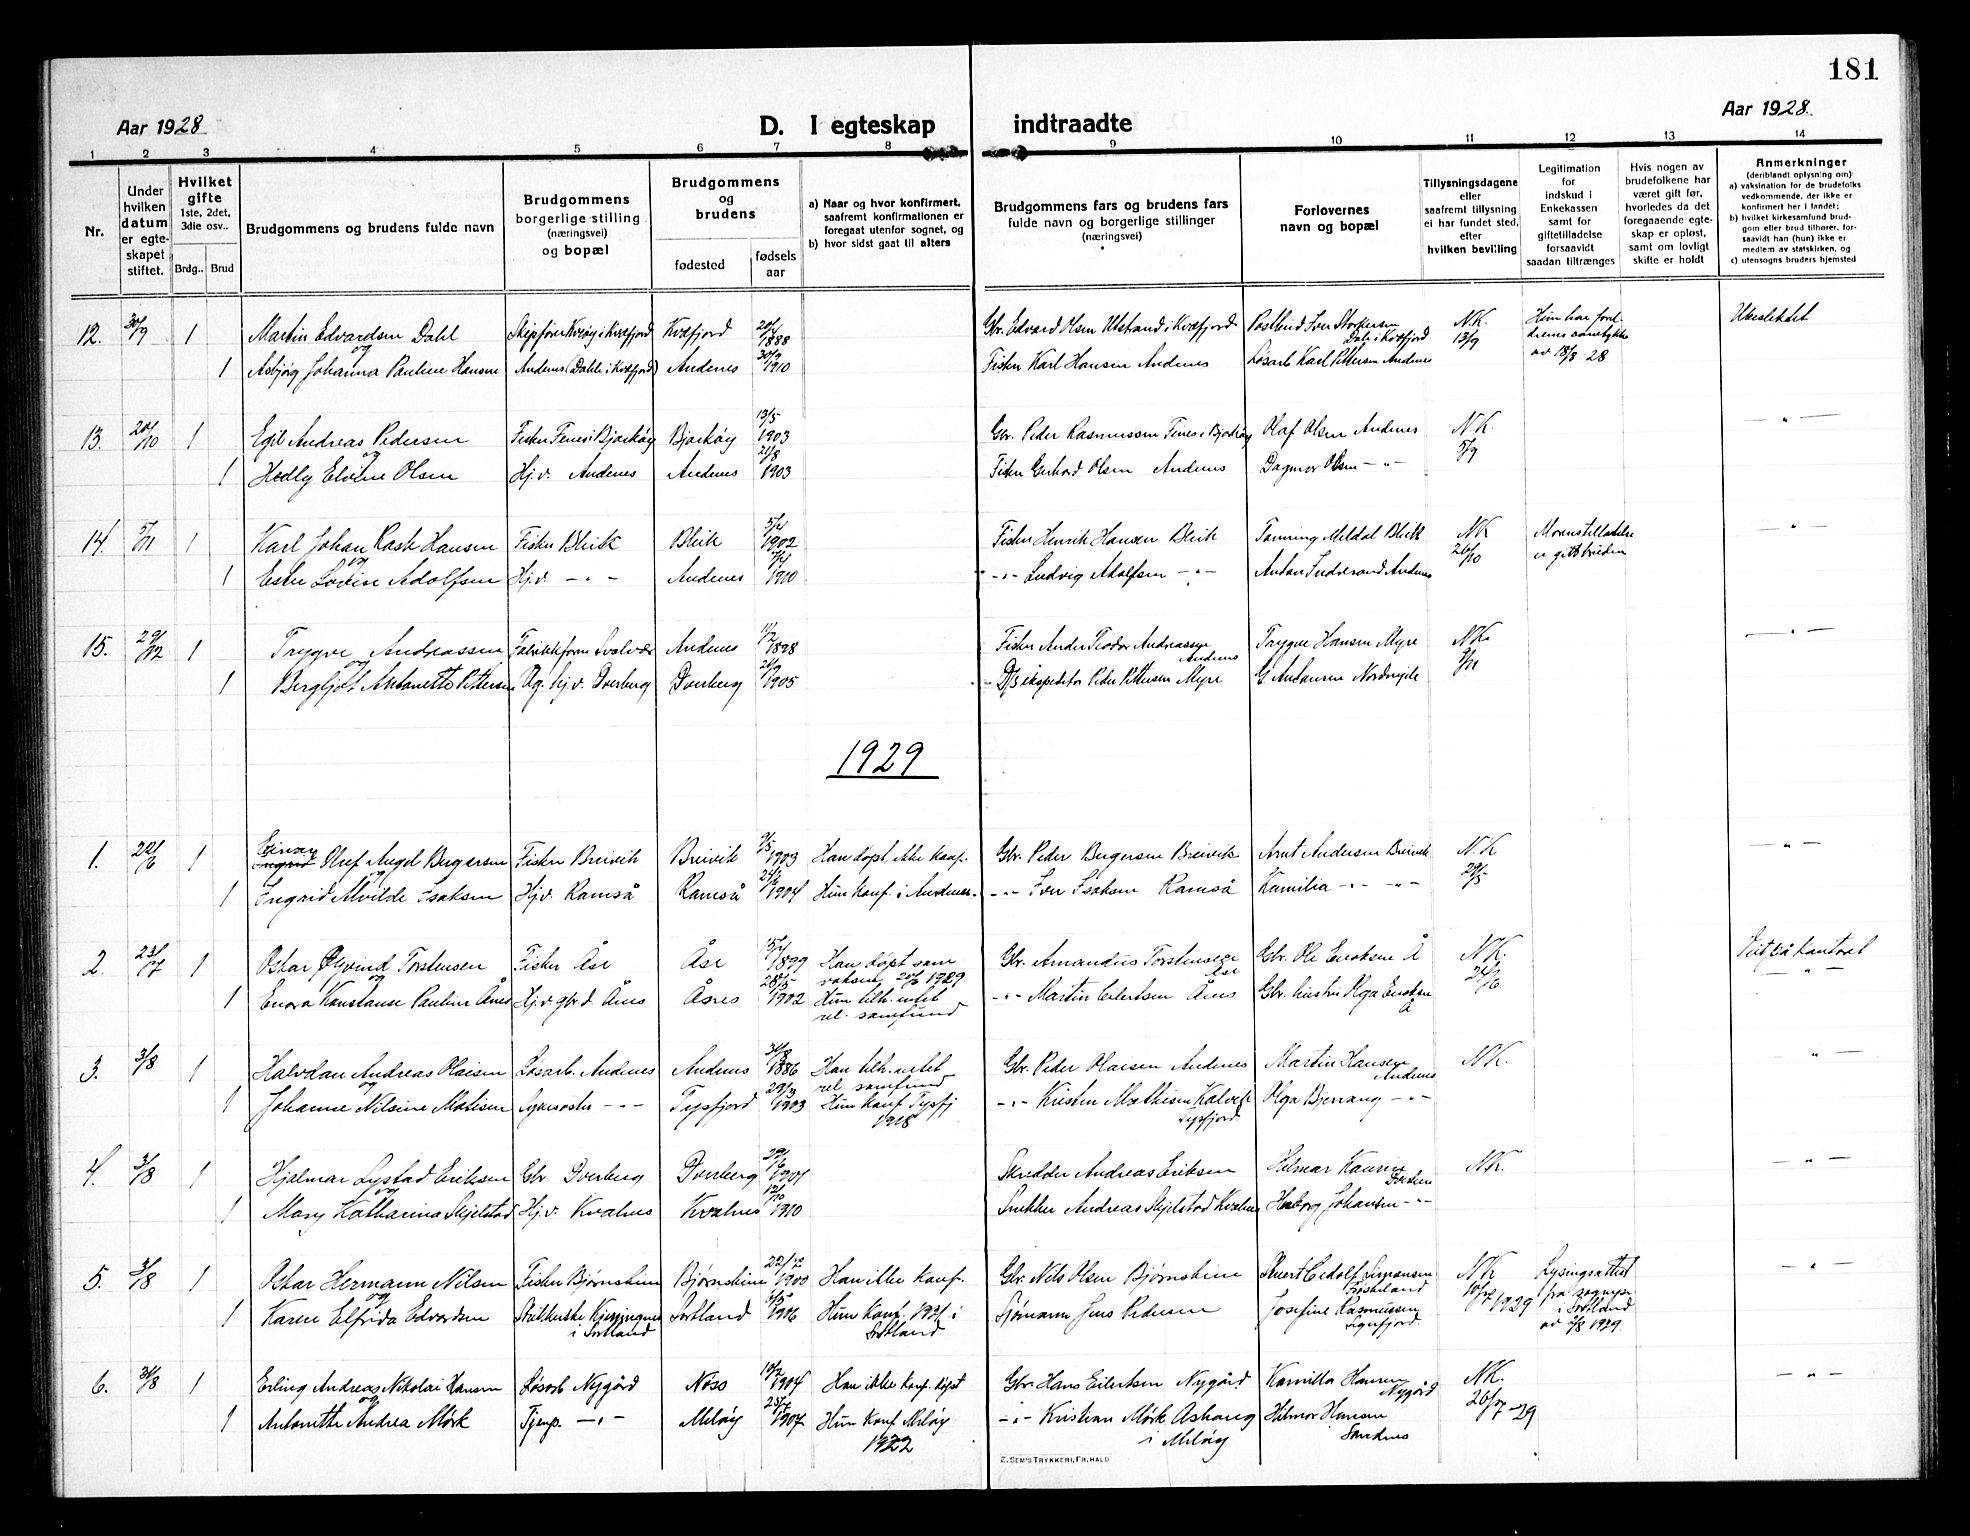 181
Aar 1928
D. I egteskap indtraadte
Aar 1928.
1 2 3 4 5 6 7 8 9 10 11 12 13 14
Nr.
Under hvilken datum er egteskapet stiftet.
Hvilket gifte 1ste, 2det, 3die osv..
Brdg.. Brud
Brudgommens og brudens fulde navn
Brudgommens borgerlige stilling (næringsvei) og bopæl
Brudgommens og brudens
fødested
fødsels aar
a) Naar og hvor konfirmert, saafremt konfirmationen er foregaat utenfor sognet, og
b) hvor sidst gaat til alters
Brudgommens fars og brudens fars fulde navn og borgerlige stillinger (næringsvei)
Forlovernes navn og bopæl
Tillysningsdagene eller saafremt tillysning ei har fundet sted, efter hvilken bevilling
Legitimation for indskud i Enkekassen samt for giftetilladelse forsaavidt saadan tiltrænges
Hvis nogen av brudefolkene har været gift før, hvorledes da det foregaaende egteskap er opløst, samt om lovligt skifte er holdt
Anmerkninger (deriblandt oplysning om)
a) vaksination for de brudefolks vedkommende, der ikke er konfirmert her i landet;
b) hvilket kirkesamfund brudgom eller brud tilhører, forsaavidt han (hun) ikke er medlem av statskirken, og
c) utensogns bruders hjemsted
12. 30/9 1 Martin Edvardsen Dahl Skipfører Kvæfjord Kvæfjord 1888 Gbr. Edvard Olsen Utstrand i Kvæfjord N.K. 13/9 Ubeslektet
og
1 Asbjørg Johanna Pauline Hansen Andenes (Dahle i Kvæfjord) Andenes 1910 Fisker Karl Hansen Andenes Løsarb Karl Pettersen Andenes av 18/8 28
13. 20/10 1 Egil Andreas Pedersen Fisker Fenes i Bjarkøy Bjarkøy 13/5 1903 Gbr. Peder Rasmussen Fenes i Bjarkøy Olaf Olsen Andenes N.K. 5/9 -"-
og
1 Hedly Elvine Olsen Hj.v. Andenes Andenes 21/8 1903 Fisker Gerhard Olsen Andenes Dagmar Olsen -"-
14. 5/11 1 Karl Johan Rask Hansen Fisker Bleik Bleik 1902 Fisker Henrik Hansen Bleik Meldal Bleik N.K. 26/10 -"-
og
1 Ester Lovise Adolfsen Hj.v. -"- Andenes 1910 -"- Ludvig Adolfsen -"- er gitt bruden
15. 29/12 1 Trygve Andreassen Svolvær Andenes 1898 Fisker Teodor Andreassen Andenes Trygve Hansen Myre N.K. -"-
og
1 Bergljot Antonette Pettersen Hj.v. Dverberg Dverberg 1905 D/S ekspeditør Peder Pettersen Myre
1929
1. 22/6 1 Einar Olaf Angel Bergersen Fisker Breivik Breivik 9/5 1903 Han døpt, ikke konf. Gbr. Peder Bergersen Breivik Arnt Andersen Breivik N.K. 29/5 -"-
og
1 Ingrid Alvilde Isaksen Hj.v. Ramså Ramså 1904 Hun konf. i Andenes -"- Iver Isaksen Ramså Kamilia -"- -"-
2. 23/7 1 Oskar Øyvind Torstensen Fisker Åse Åse 1899 Han døpt som voksen, 20/6 1929 Gbr. Amandus Torstensen Åse Gbr. Ole Enoksen Å N.K. 24/6 Viet på kontoret
og
1 Enora Konstanse Pauline Ånes 28/5 1902 Hun tilh. intet rel. samfund -"- Martin Eilertsen Ånes Olga Enoksen Å -"-
3. 3/8 1 Halvdan Andreas Olaisen Løsarb. Andenes Andenes 1886 Han tilh. intet rel. samfund Gbr. Peder Olaisen Andenes Martin Hansen Andenes N.K. -"-
og
1 Johanne Nilsine Matisen Sykesøster -"- Tysfjord 1903 Hun konf Tysfj 1918 -"- Kristen Mathisen Kalvik Tysfjord. Olga -"-
4. 3/8 1 Hjalmar Lystad Eriksen Gbr Dverberg Dverberg 1901 Skredder Andreas Eriksen N.K. -"-
og
1 Mary Katharina Skjelstad Hj.v. Kvalnes Kvalnes 12/10 1910 Snekker Andreas Skjelstad Kvalnes Johansen -"-
5. 3/8 1 Oskar Hermann Nilsen Fisker Bjørnskinn Bjørnskinn 22/12 1900 Han ikke konf. Gbr. Nils Olsen Bjørnskinn N.K. 1929 Lysingsattest fra sognepr i Sortland -"-
og
1 Karen Elfrida Edvardsen i Sortland Sortland 6/5 1906 Hun konf 1921 i Sortland Sjømann Jens Pedersen Josefine Rasmussen Sigerfjord. av 2/8 1929.
6. 31/8 1 Erling Andreas Nikolai Hansen Løsarb Nygård Nøss 1904 Han ikke konf. døpt Gbr. Hans Eilertsen Nygård Kamilla Hansen Nygård N.K. 26/7 -29 -"-
og
1 Antonette Andrea Mørk Tjenp. -"- Meløy 1907 Hun konf Meløy 1922 -"- Kristian Mørk i Meløy Hilmar Hansen Sandnes
E. SEM'S TRYKKERI, FR. HALD